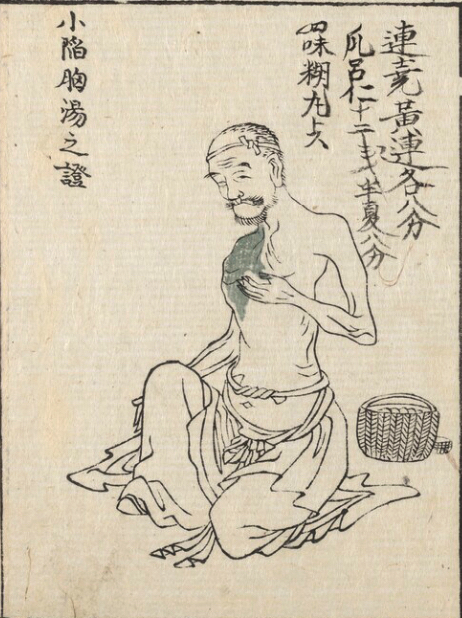 連尭黄連各八分
瓜呂仁十二 半夏八分
四味糊丸
小陷胸湯之證